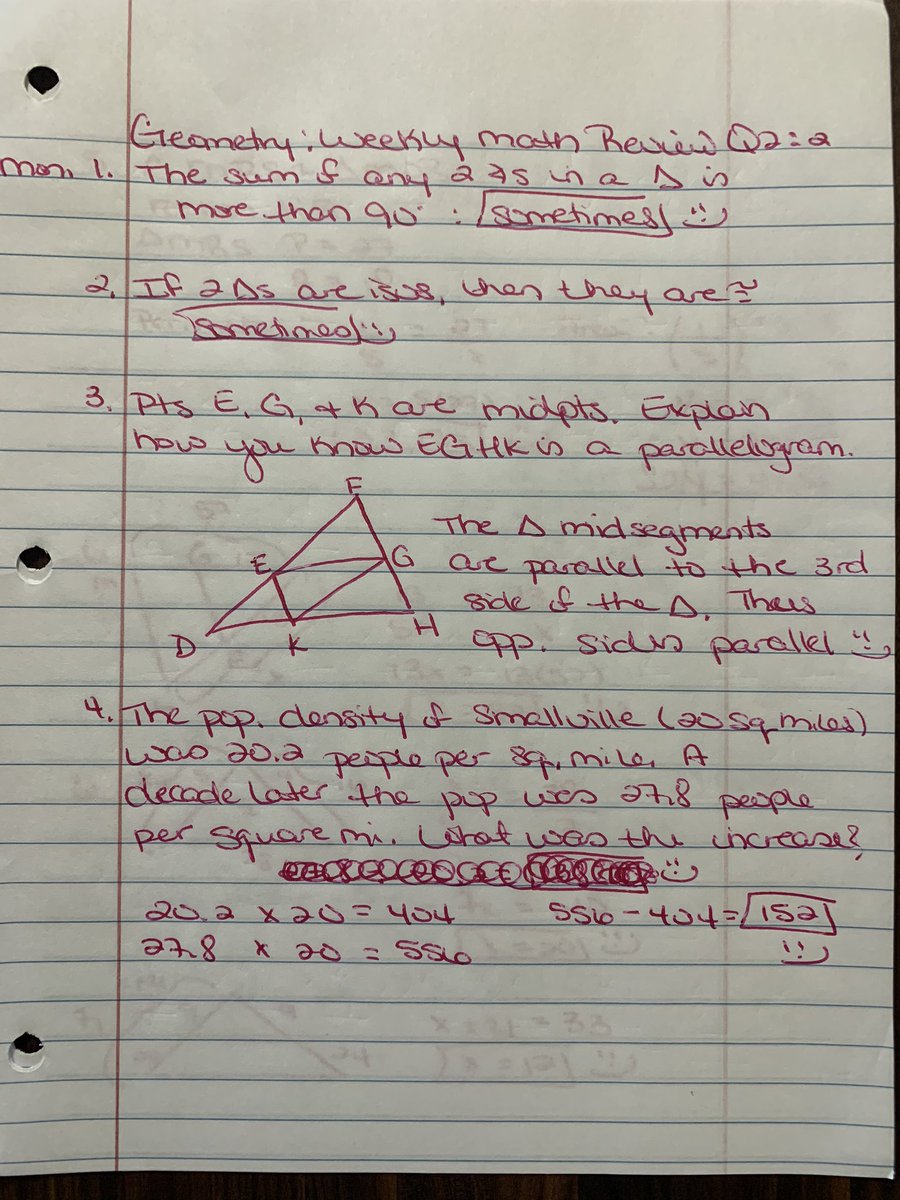 Geometry: Weekly Math Review Q2:2
Mon. 1. The sum of any 2 ∠s in a Δ is
more than 90° : sometimes
2. If 2 Δs are isos, then they are ≅
sometimes
3. Pts E, G, + K are midpts. Explain
how you know EGHK is a parallelogram.
F
The Δ midsegments
E G are parallel to the 3rd
side of the Δ. Thus
D K H opp. sides parallel
4. The pop. density of Smallville (20 sq miles)
was 20.2 people per sq. mile. A
decade later the pop was 27.8 people
per square mi. What was the increase?
20.2 x 20 = 404 556 - 404 = 152
27.8 x 20 = 556